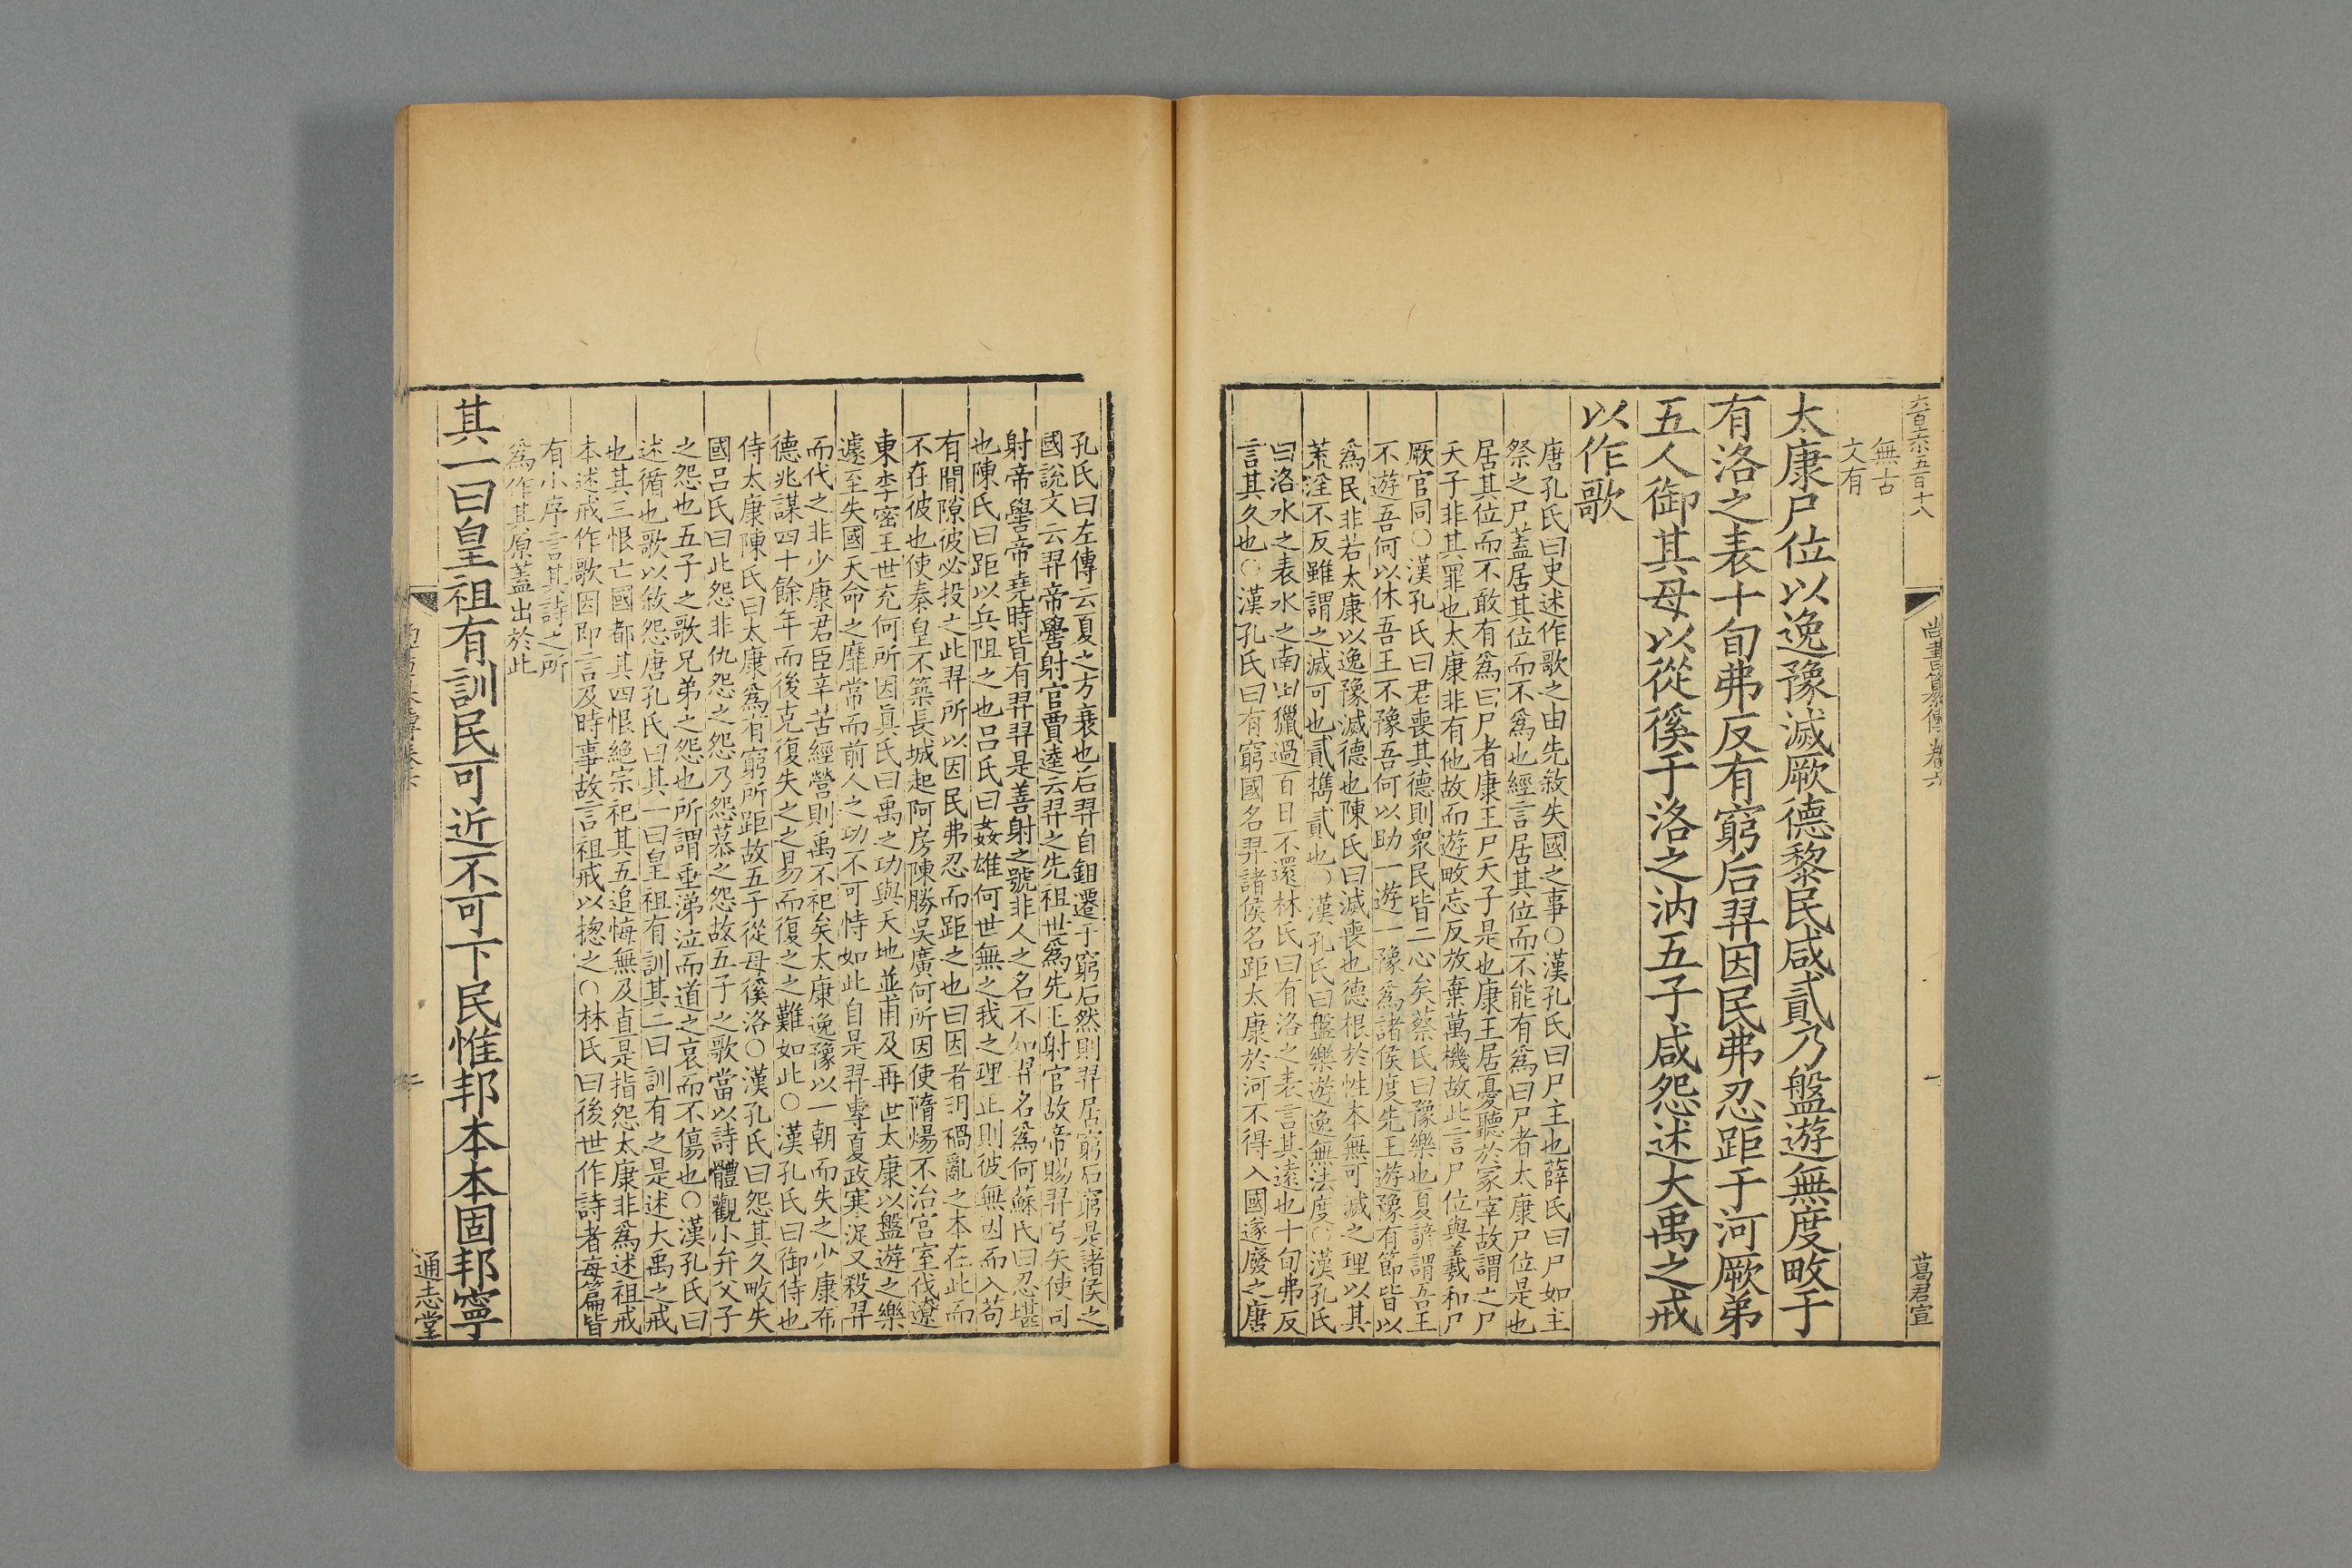 六百六 五百十八
尚書纂傳卷六
一
葛君宣
無古
文有
太康尸位以逸豫滅厥德黎民咸貳乃盤遊無度畋于
有洛之表十旬弗反有窮后羿因民弗忍距于河厥弟
五人御其母以從徯于洛之汭五子咸怨述大禹之戒
以作歌
唐孔氏曰史述作歌之由先敘失國之事○漢孔氏曰尸主也薛氏曰尸如主
祭之尸蓋居其位而不爲也經言居其位而不能有爲曰尸者太康尸位是也
居其位而不敢有爲曰尸者康王尸天子是也康王居憂聽於冢宰故謂之尸
天子非其罪也太康非有他故而遊畋忘反放棄萬機故此言尸位與羲和尸
厥官同○漢孔氏曰君喪其德則衆民皆二心矣蔡氏曰豫樂也夏諺謂吾王
不遊吾何以休吾王不豫吾何以助一遊一豫爲諸侯度先王遊豫有節皆以
爲民非若太康以逸豫滅德也陳氏曰滅喪也德根於性本無可滅之理以其
荒淫不反雖謂之滅可也貳擕貳也○漢孔氏曰盤樂遊逸無法度○漢孔氏
曰洛水之表水之南出獵過百日不還林氏曰有洛之表言其遠也十旬弗反
言其久也○漢孔氏曰有窮國名羿諸侯名距太康於河不得入國遂廢之唐
孔氏曰左傳云夏之方衰也后羿自鉏遷于窮石然則羿居窮石窮是諸侯之
國說文云羿帝嚳射官賈逵云羿之先祖世爲先王射官故帝賜羿弓矢使司
射帝嚳帝堯時皆有羿羿是善射之號非人之名不知羿名爲何蘇氏曰忍堪
也陳氏曰距以兵阻之也呂氏曰姦雄何世無之我之理正則彼無因而入苟
有間隙彼必投之此羿所以因民弗忍而距之也曰因者明禍亂之本在此而
不在彼也使秦皇不築長城起阿房陳勝吳廣何所因使隋煬不治宮室伐遼
東李密王世充何所因眞氏曰禹之功與天地並甫及再世太康以盤遊之樂
遽至失國天命之靡常而前人之功不可恃如此自是羿專夏政寒浞又殺羿
而代之非少康君臣辛苦經營則禹不祀矣太康逸豫以一朝而失之少康布
德兆謀四十餘年而後克復失之之易而復之之難如此○漢孔氏曰御侍也
侍太康陳氏曰太康爲有窮所距故五子從母徯洛○漢孔氏曰怨其久畋失
國呂氏曰此怨非仇怨之怨乃怨慕之怨故五子之歌當以詩體觀小弁父子
之怨也五子之歌兄弟之怨也所謂垂涕泣而道之哀而不傷也○漢孔氏曰
述循也歌以敘怨唐孔氏曰其一曰皇祖有訓其二曰訓有之是述大禹之戒
也其三恨亡國都其四恨絕宗祀其五追悔無及直是指怨太康非爲述祖戒
本述戒作歌因即言及時事故言祖戒以揔之○林氏曰後世作詩者每篇皆
有小序言其詩之所
爲作其原蓋出於此
其一曰皇祖有訓民可近不可下民惟邦本本固邦寧
通志堂